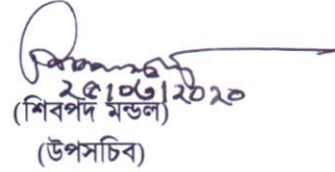 ২৫।০৬।২০২০
(শিবপদ মন্ডল)
(উপসচিব)